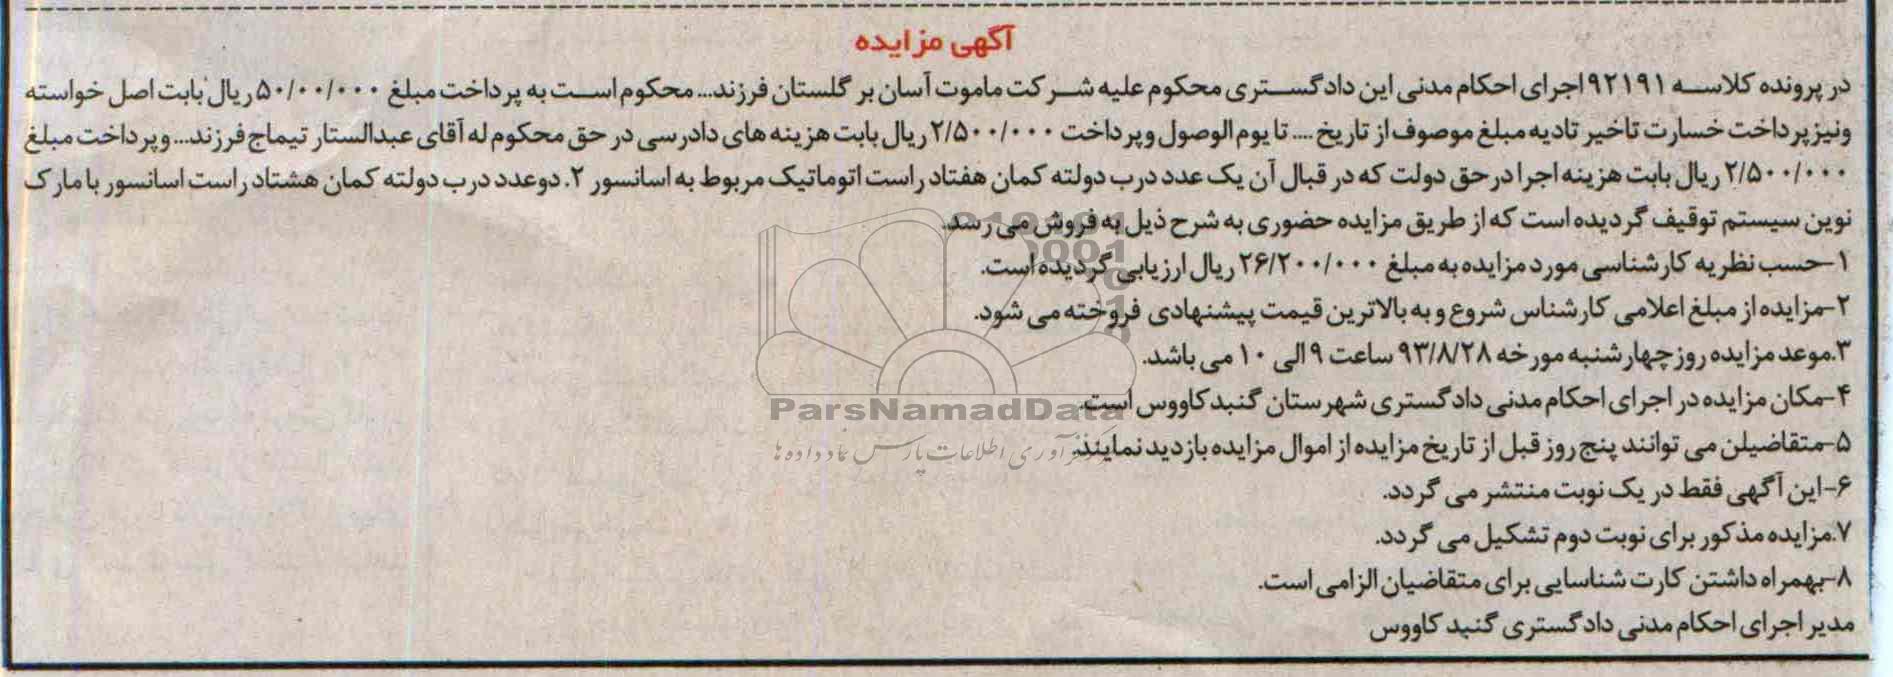 آگهی مزایده
در پرونده کلاسه ۹۲۱۹۱ اجرای احکام مدنی این دادگستری محکوم علیه شرکت ماموت آسان بر گلستان فرزند... محکوم است به پرداخت مبلغ ۵۰/۰۰/۰۰۰ ریال بابت اصل خواسته
ونیز پرداخت خسارت تاخیر تادیه مبلغ موصوف از تاریخ .... تا یوم الوصول و پرداخت ۲/۵۰۰/۰۰۰ ریال بابت هزینه های دادرسی در حق محکوم له آقای عبدالستار تیماج فرزند... و پرداخت مبلغ
۲/۵۰۰/۰۰۰ ریال بابت هزینه اجرا در حق دولت که در قبال آن یک عدد درب دولته کمان هفتاد راست اتوماتیک مربوط به اسانسور ۲. دو عدد درب دولته کمان هشتاد راست اسانسور با مارک
نوین سیستم توقیف گردیده است که از طریق مزایده حضوری به شرح ذیل به فروش می رسد.
۱-حسب نظریه کارشناسی مورد مزایده به مبلغ ۲۶/۲۰۰/۰۰۰ ریال ارزیابی گردیده است.
۲-مزایده از مبلغ اعلامی کارشناس شروع و به بالاترین قیمت پیشنهادی فروخته می شود.
۳.موعد مزایده روز چهارشنبه مورخه ۹۳/۸/۲۸ ساعت ۹ الی ۱۰ می باشد.
۴-مکان مزایده در اجرای احکام مدنی دادگستری شهرستان گنبد کاووس است.
۵-متقاضیلن می توانند پنج روز قبل از تاریخ مزایده از اموال مزایده بازدید نمایند.
۶-این آگهی فقط در یک نوبت منتشر می گردد.
۷.مزایده مذکور برای نوبت دوم تشکیل می گردد.
۸-بهمراه داشتن کارت شناسایی برای متقاضیان الزامی است.
مدیر اجرای احکام مدنی دادگستری گنبد کاووس
ParsNamadData
فرآوری اطلاعات پارس نماد داده ها